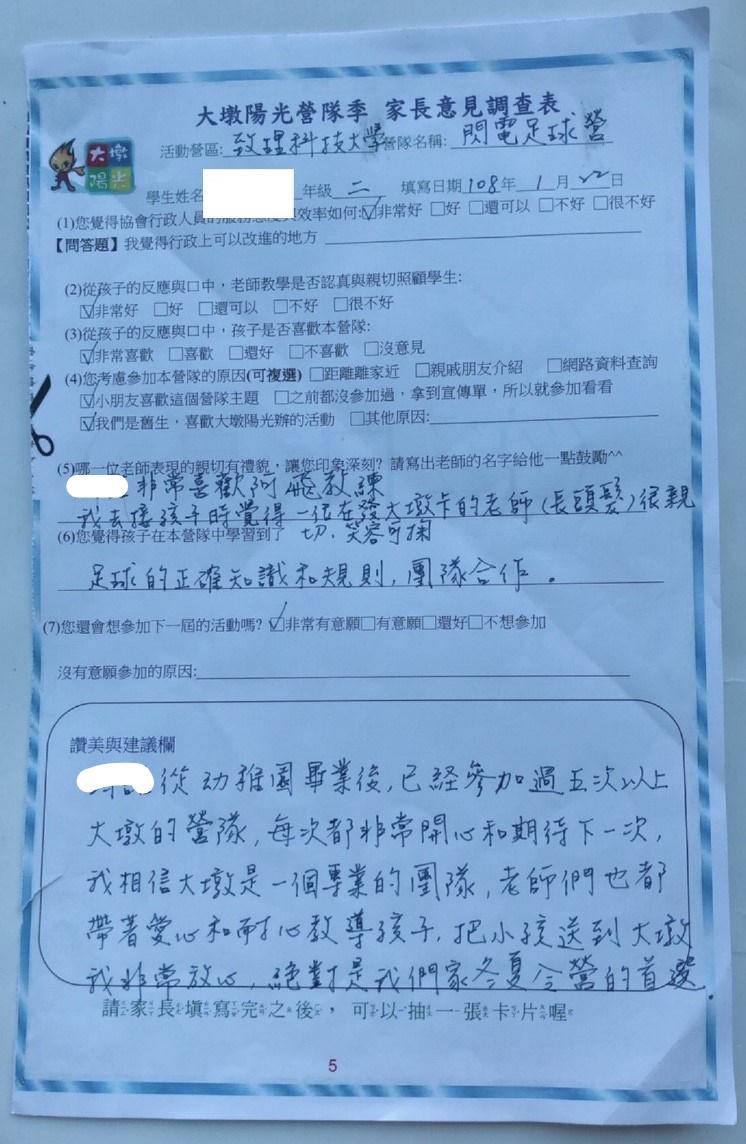 大墩陽光營隊季 家長意見調查表
大墩
陽光
活動營區: 致理科技大學 營隊名稱: 閃電足球營
學生姓名 年級 二 填寫日期 108年 1月 22日
(1)您覺得協會行政人員的服務態度與效率如何:☑非常好 □好 □還可以 □不好 □很不好
【問答題】我覺得行政上可以改進的地方
(2)從孩子的反應與口中，老師教學是否認真與親切照顧學生:
☑非常好 □好 □還可以 □不好 □很不好
(3)從孩子的反應與口中，孩子是否喜歡本營隊:
☑非常喜歡 □喜歡 □還好 □不喜歡 □沒意見
(4)您考慮參加本營隊的原因(可複選) □距離離家近 □親戚朋友介紹 □網路資料查詢
☑小朋友喜歡這個營隊主題 □之前都沒參加過，拿到宣傳單，所以就參加看看
☑我們是舊生，喜歡大墩陽光辦的活動 □其他原因:
(5)哪一位老師表現的親切有禮貌，讓您印象深刻? 請寫出老師的名字給他一點鼓勵^^
非常喜歡阿飛教練
我去接孩子時覺得一位在發大墩卡的老師(長頭髮)很親
切，笑容可掬
(6)您覺得孩子在本營隊中學習到了
足球的正確知識和規則，團隊合作。
(7)您還會想參加下一屆的活動嗎? ☑非常有意願□有意願□還好□不想參加
沒有意願參加的原因:
讚美與建議欄
從幼稚園畢業後，已經參加過五次以上
大墩的營隊，每次都非常開心和期待下一次，
我相信大墩是一個專業的團隊，老師們也都
帶著愛心和耐心教導孩子，把小孩送到大墩
我非常放心，絕對是我們家冬夏令營的首選。
請家長填寫完之後，可以抽一張卡片喔
5